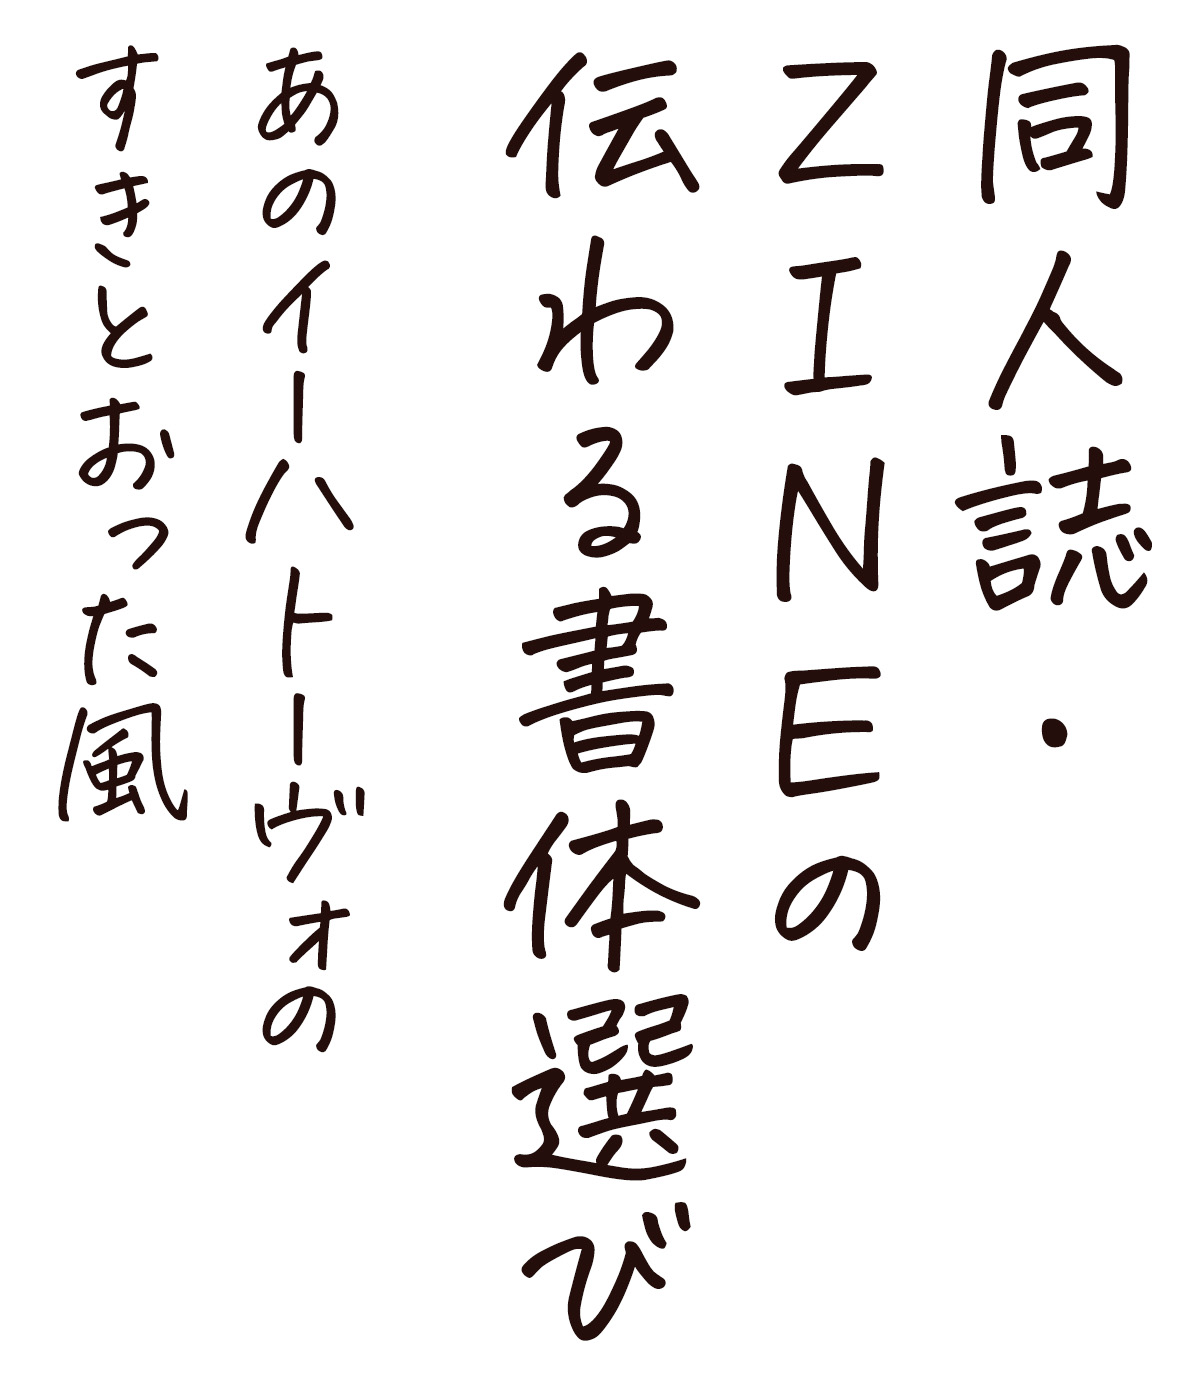 同人誌・
ZINEの
伝わる書体選び
あのイーハトーヴォの
すきとおった風